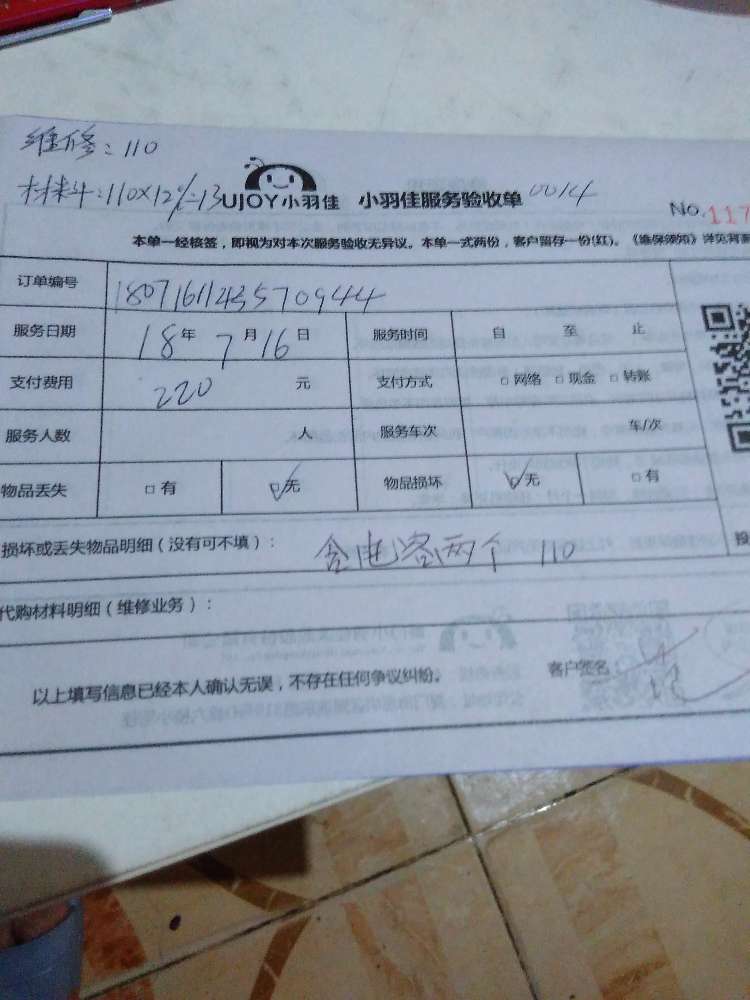 维修：110
材料：110×12%=13
UJOY小羽佳 小羽佳服务验收单 0014
No.117
本单一经核签，即视为对本次服务验收无异议。本单一式两份，客户留存一份(红)。《维保须知》详见背面
订单编号 18071611243570944
服务日期 18年7月16日 服务时间 自 至 止
支付费用 220 元 支付方式 □网络 □现金 □转账
服务人数 人 服务车次 车/次
物品丢失 □有 ☑无 物品损坏 ☑无 □有
损坏或丢失物品明细（没有可不填）： 含电容两个 110
代购材料明细（维修业务）：
以上填写信息已经本人确认无误，不存在任何争议纠纷。 客户签名